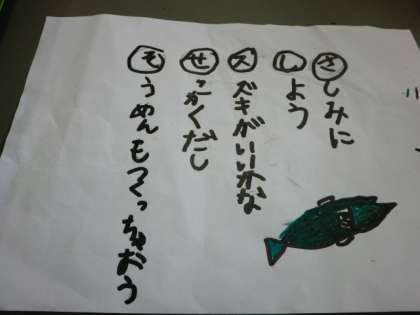 さしみに
しよう
スズキがいいかな
せっかくだし
そうめんもつくっちゃおう